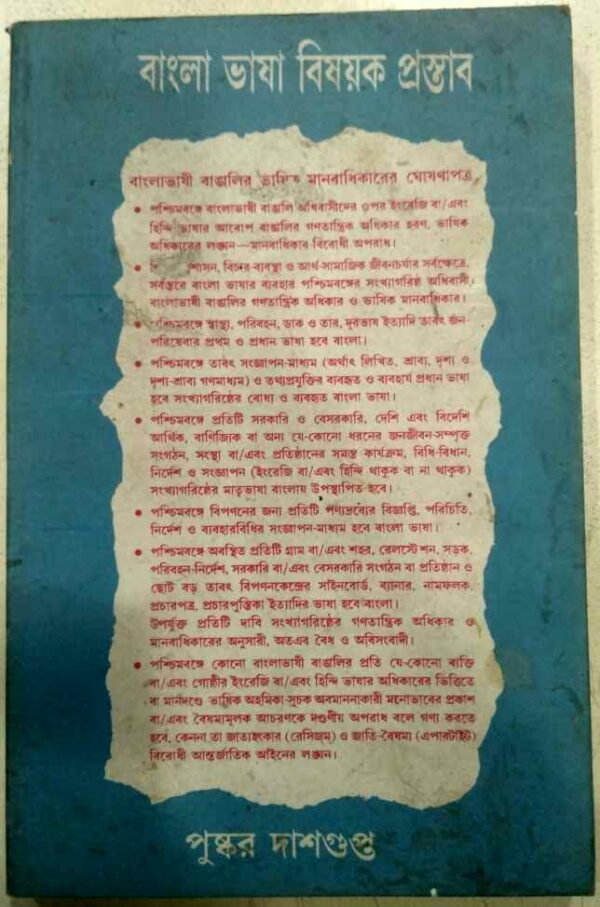 বাংলা ভাষা বিষয়ক প্রস্তাব
বাংলাভাষী বাঙালির ভাষিক মানবাধিকারের ঘোষণাপত্র
• পশ্চিমবঙ্গে বাংলাভাষী বাঙালি অধিবাসীদের ওপর ইংরেজি বা/এবং
হিন্দি ভাষার আরোপ বাঙালির গণতান্ত্রিক অধিকার হরণ, ভাষিক
অধিকারের লঙ্ঘন—মানবাধিকার বিরোধী অপরাধ।
• শাসন, বিচার-ব্যবস্থা ও আর্থ-সামাজিক জীবনচর্যার সর্বক্ষেত্রে,
সর্বস্তরে বাংলা ভাষার ব্যবহার পশ্চিমবঙ্গের সংখ্যাগরিষ্ঠ অধিবাসী
বাংলাভাষী বাঙালির গণতান্ত্রিক অধিকার ও ভাষিক মানবাধিকার।
• পশ্চিমবঙ্গে স্বাস্থ্য, পরিবহন, ডাক ও তার, দূরভাষ ইত্যাদি তাবৎ জন-
পরিষেবার প্রথম ও প্রধান ভাষা হবে বাংলা।
• পশ্চিমবঙ্গে তাবৎ সংজ্ঞাপন-মাধ্যম (অর্থাৎ লিখিত, শ্রাব্য, দৃশ্য ও
দৃশ্য-শ্রাব্য গণমাধ্যম) ও তথ্যপ্রযুক্তির ব্যবহৃত ও ব্যবহার্য প্রধান ভাষা
হবে সংখ্যাগরিষ্ঠের বোধ্য ও ব্যবহৃত বাংলা ভাষা।
• পশ্চিমবঙ্গে প্রতিটি সরকারি ও বেসরকারি, দেশি এবং বিদেশি
আর্থিক, বাণিজ্যিক বা অন্য যে-কোনো ধরনের জনজীবন-সম্পৃক্ত
সংগঠন, সংস্থা বা/এবং প্রতিষ্ঠানের সমস্ত কার্যক্রম, বিধি-বিধান,
নির্দেশ ও সংজ্ঞাপন (ইংরেজি বা/এবং হিন্দি থাকুক বা না থাকুক)
সংখ্যাগরিষ্ঠের মাতৃভাষা বাংলায় উপস্থাপিত হবে।
• পশ্চিমবঙ্গে বিপণনের জন্য প্রতিটি পণ্যদ্রব্যের বিজ্ঞপ্তি, পরিচিতি,
নির্দেশ ও ব্যবহারবিধির সংজ্ঞাপন-মাধ্যম হবে বাংলা ভাষা।
• পশ্চিমবঙ্গে অবস্থিত প্রতিটি গ্রাম বা/এবং শহর, রেলস্টেশন, সড়ক,
পরিবহন-নির্দেশ, সরকারি বা/এবং বেসরকারি সংগঠন বা প্রতিষ্ঠান ও
ছোট বড় তাবৎ বিপণনকেন্দ্রের সাইনবোর্ড, ব্যানার, নামফলক,
প্রচারপত্র, প্রচারপুস্তিকা ইত্যাদির ভাষা হবে বাংলা।
উপর্যুক্ত প্রতিটি দাবি সংখ্যাগরিষ্ঠের গণতান্ত্রিক অধিকার ও
মানবাধিকারের অনুসারী, অতএব বৈধ ও অবিসংবাদী।
• পশ্চিমবঙ্গে কোনো বাংলাভাষী বাঙালির প্রতি যে-কোনো ব্যক্তি
বা/এবং গোষ্ঠীর ইংরেজি বা/এবং হিন্দি ভাষার অধিকারের ভিত্তিতে
বা মানদণ্ডে ভাষিক অহমিকা-সূচক অবমাননাকারী মনোভাবের প্রকাশ
বা/এবং বৈষম্যমূলক আচরণকে দণ্ডণীয় অপরাধ বলে গণ্য করতে
হবে, কেননা তা জাত্যহংকার (রেসিজম্) ও জাতি-বৈষম্য (এপারটাইট)
বিরোধী আন্তর্জাতিক আইনের লঙ্ঘন।
পুষ্কর দাশগুপ্ত